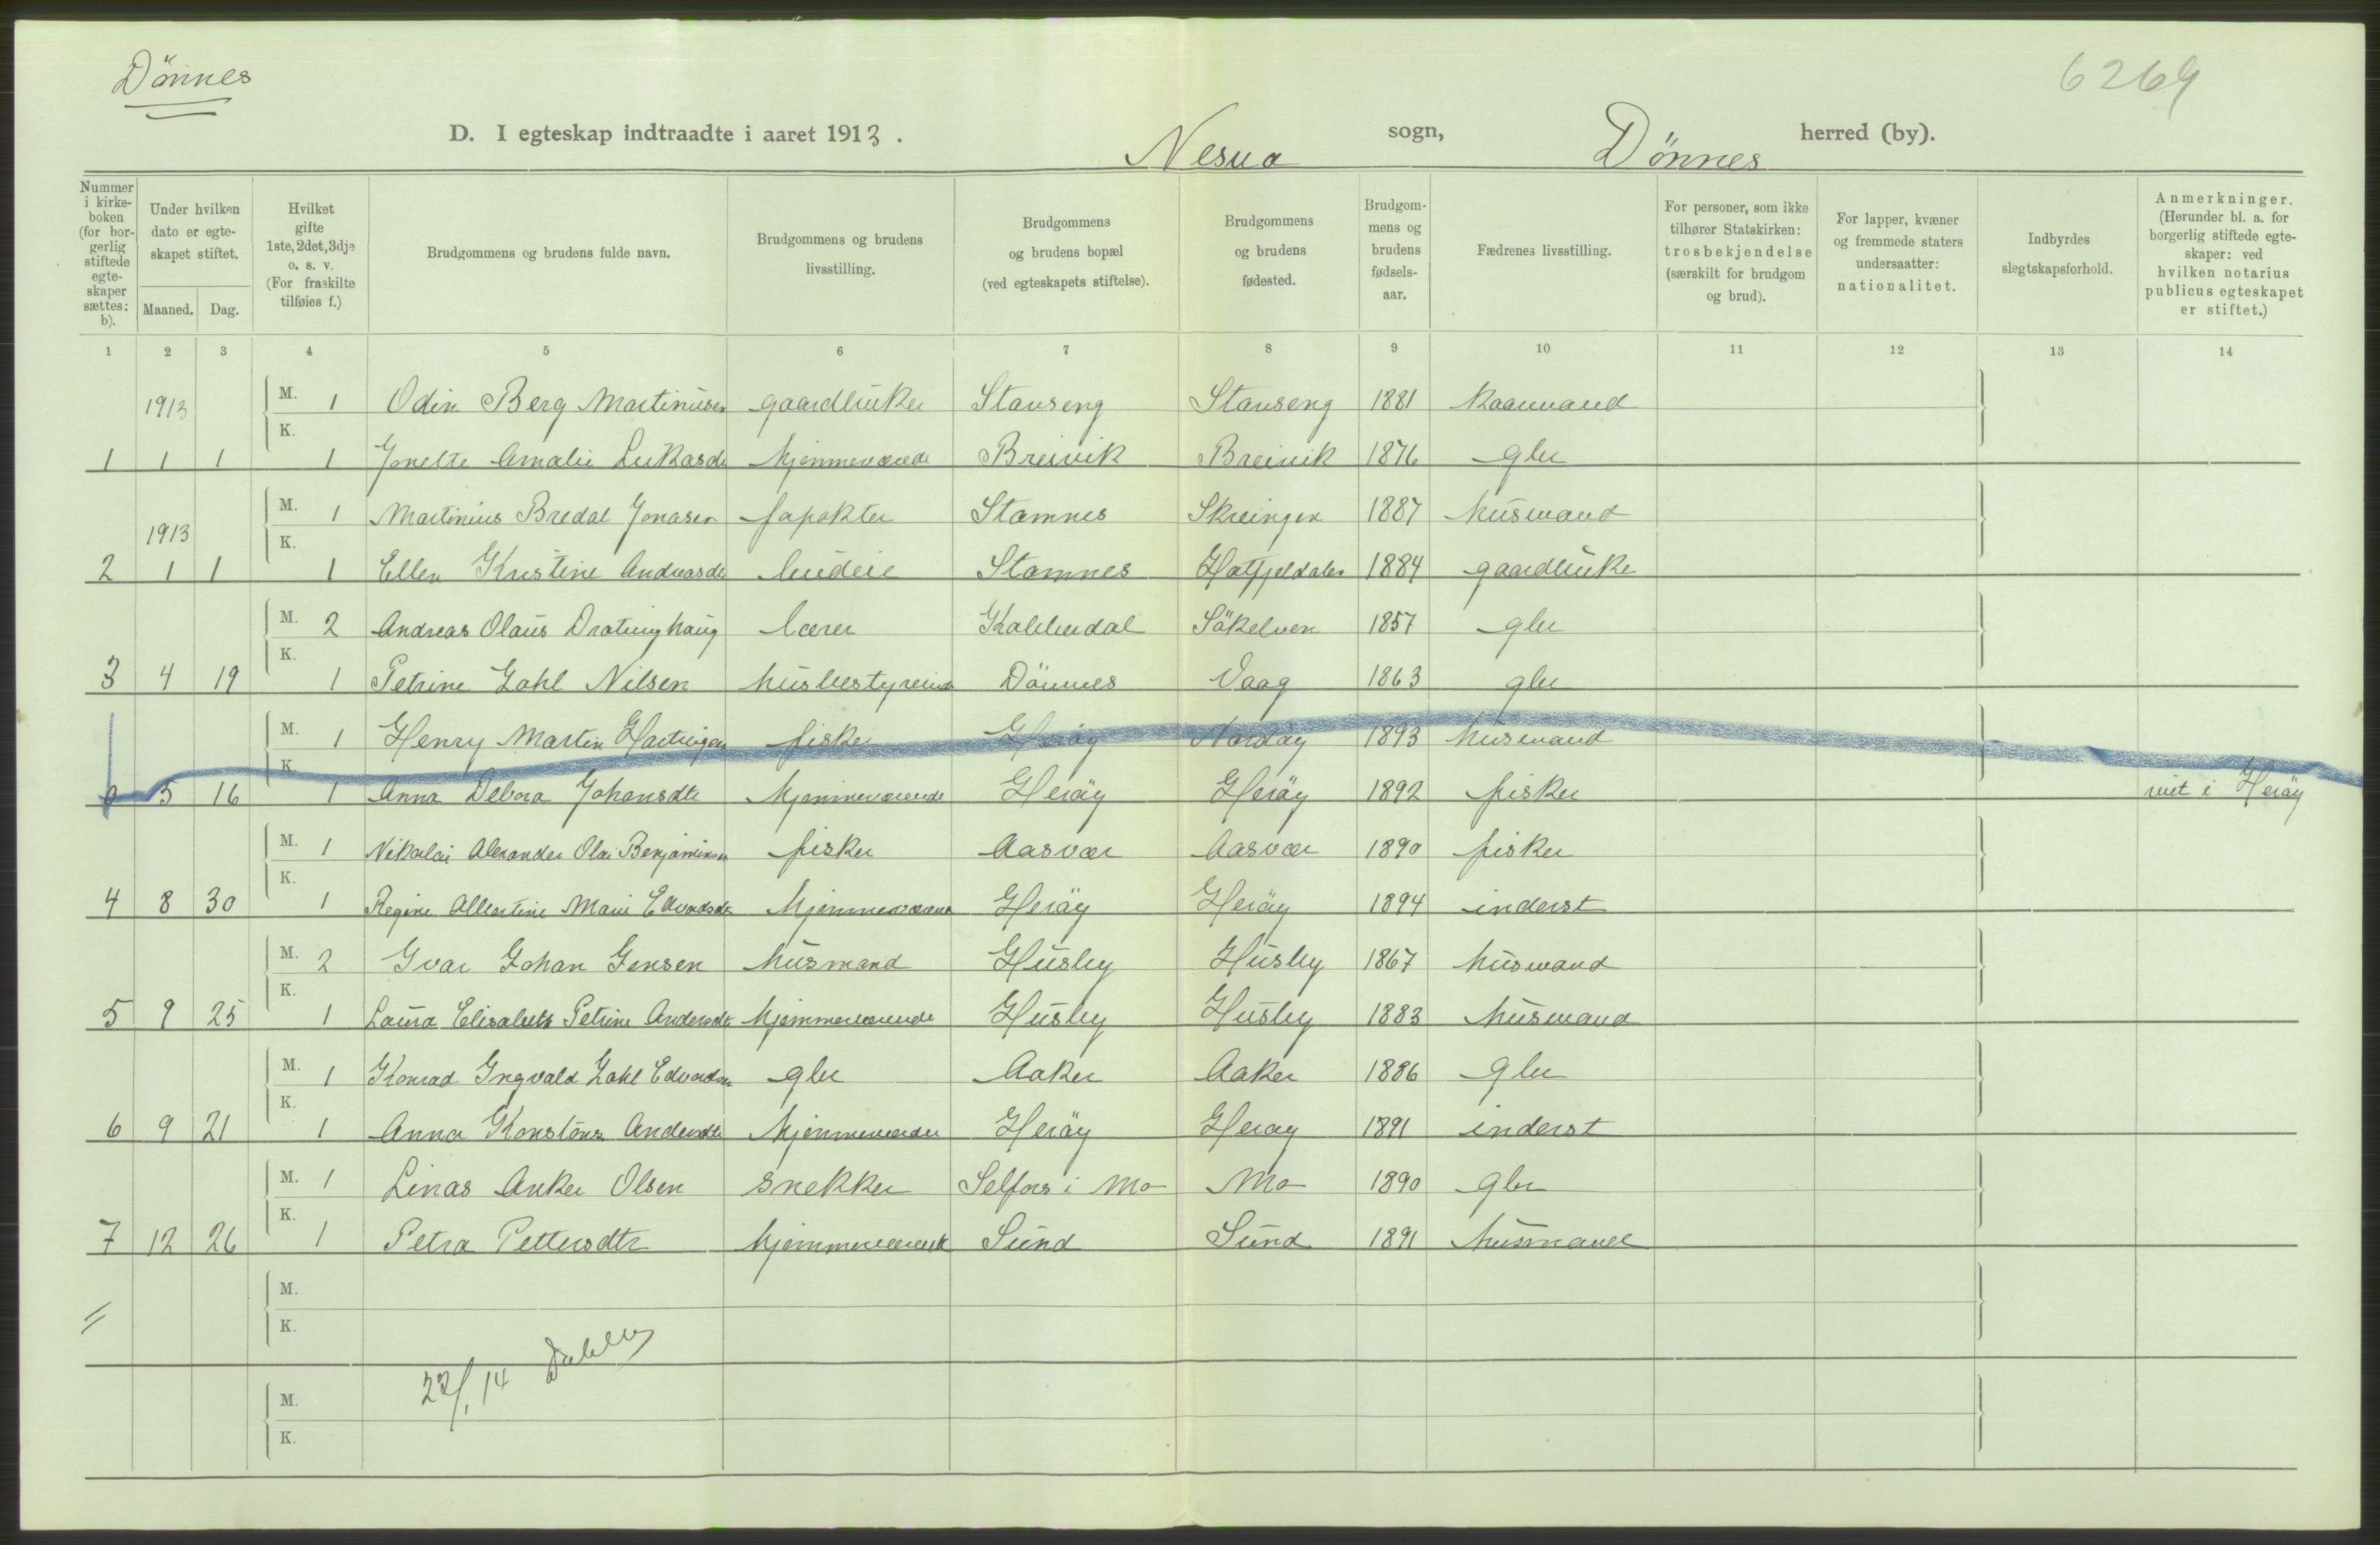 Dönnes
6269
D. I egteskap indtraadte i aaret 1913.
Nesna sogn, Dönnes herred (by).
Nummer i kirkeboken (for borgerlig stiftede egteskaper sættes: b).
Under hvilken dato er egteskapet stiftet.
Maaned. Dag.
Hvilket gifte 1ste, 2det, 3dje o. s. v. (For fraskilte tilføies f.)
Brudgommens og brudens fulde navn.
Brudgommens og brudens livsstilling.
Brudgommens og brudens bopæl (ved egteskapets stiftelse).
Brudgommens og brudens fødested.
Brudgommens og brudens fødselsaar.
Fædrenes livsstilling.
For personer, som ikke tilhører Statskirken: trosbekjendelse (særskilt for brudgom og brud).
For lapper, kvæner og fremmede staters undersaatter: nationalitet.
Indbyrdes slegtskapsforhold.
Anmerkninger. (Herunder bl. a. for borgerlig stiftede egteskaper: ved hvilken notarius publicus egteskapet er stiftet.)
1 2 3 4 5 6 7 8 9 10 11 12 13 14
1913 M. 1 Odin Berg Martinusen gaardbruker Stauseng Stauseng 1881 kaarmand
1 1 1 K. 1 Jonette Amalie Lukasdt hjemmeværende Breivik Breivik 1876 gbr
1913 M. 1 Martinius Bredal Jonasen Stamnes 1887 husmand
2 1 1 K. 1 Ellen Kristine Andreasdt budeie Stamnes Hatfjeldalen 1884 gaardbruke
M. 2 Andreas Olaus Drotninghaug lærer Kobberdal Sökelven 1857 gbr
3 4 19 K. 1 Petrine Zahl Nilsen husbestyrerinde Dönnes Vaag 1863 gbr
M. 1 Henry Martin Hartvigsen fisker Heröy Nordöy 1893 husmand
0 5 16 K. 1 Anna Debora Johansdtr hjemmeværende Heröy Heröy 1892 fisker viet i Heröy
M. 1 Nikolai Alexander Olai Benjaminsen fisker Aasvær Aasvær 1890 fisker
4 8 30 K. 1 Regine Albertine Marie Edvardsdtr hjemmeværende Heröy Heröy 1894 inderst
M. 2 Ivar Johan Jensen husmand Husby Husby 1867 husmand
5 9 25 K. 1 Laura Elisabeth Petrine Andersdtr hjemmeværende Husby Husby 1883 husmand
M. 1 Konrad Ingvald Zahl Edvardsen gbr Aaker Aaker 1886 gbr
6 9 21 K. 1 Anna Konstanse Andersdtr hjemmeværende Heröy Heröy 1891 inderst
M. 1 Linas Anker Olsen snekker Selfors i Mo Mo 1890 gbr
7 12 26 K. 1 Petra Pettersdtr hjemmeværende Sund Sund 1891 husmand
M.
K.
22/1 14
M.
K.